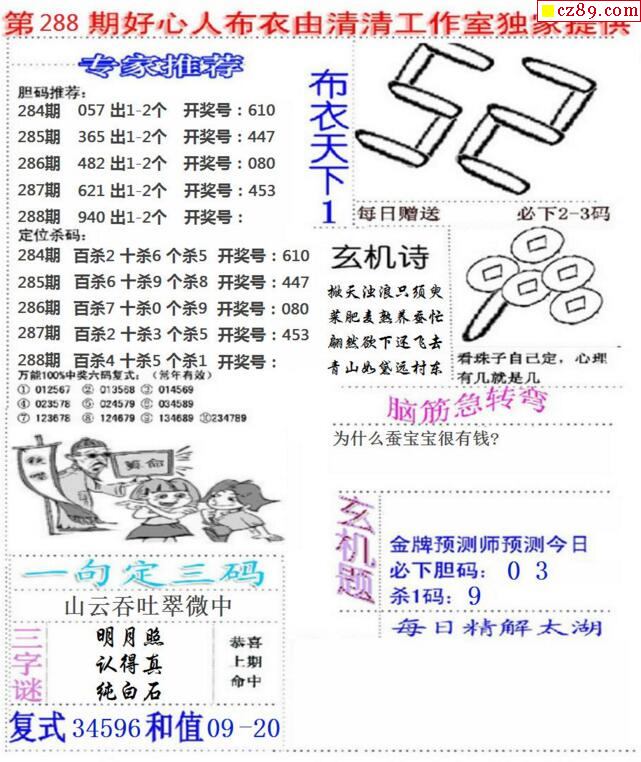 cz89.com
第288期好心人布衣由清清工作室独家提供
专家推荐
胆码推荐：
284期 057出1-2个 开奖号：610
285期 365出1-2个 开奖号：447
286期 482出1-2个 开奖号：080
287期 621出1-2个 开奖号：453
288期 940出1-2个 开奖号：
定位杀码：
284期 百杀2 十杀6 个杀5 开奖号：610
285期 百杀6 十杀9 个杀8 开奖号：447
286期 百杀7 十杀0 个杀9 开奖号：080
287期 百杀2 十杀3 个杀5 开奖号：453
288期 百杀4 十杀5 个杀1 开奖号：
万能100%中奖六码复式：（常年有效）
① 012567 ② 013568 ③ 014569
④ 023578 ⑤ 024579 ⑥ 034589
⑦ 123678 ⑧ 124679 ⑨ 134689 ⑩234789
算命
一句定三码
山云吞吐翠微中
三字谜
明月照
认得真
纯白石
恭喜
上期
命中
复式34596和值09-20
布衣天下1
52
每日赠送 必下2-3码
玄机诗
掀天浊浪只须臾
菜肥麦熟养蚕忙
翩然欲下还飞去
青山如黛远村东
看珠子自己定，心理
有几就是几
脑筋急转弯
为什么蚕宝宝很有钱?
玄机题
金牌预测师预测今日
必下胆码： 0 3
杀1码： 9
每日精解太湖